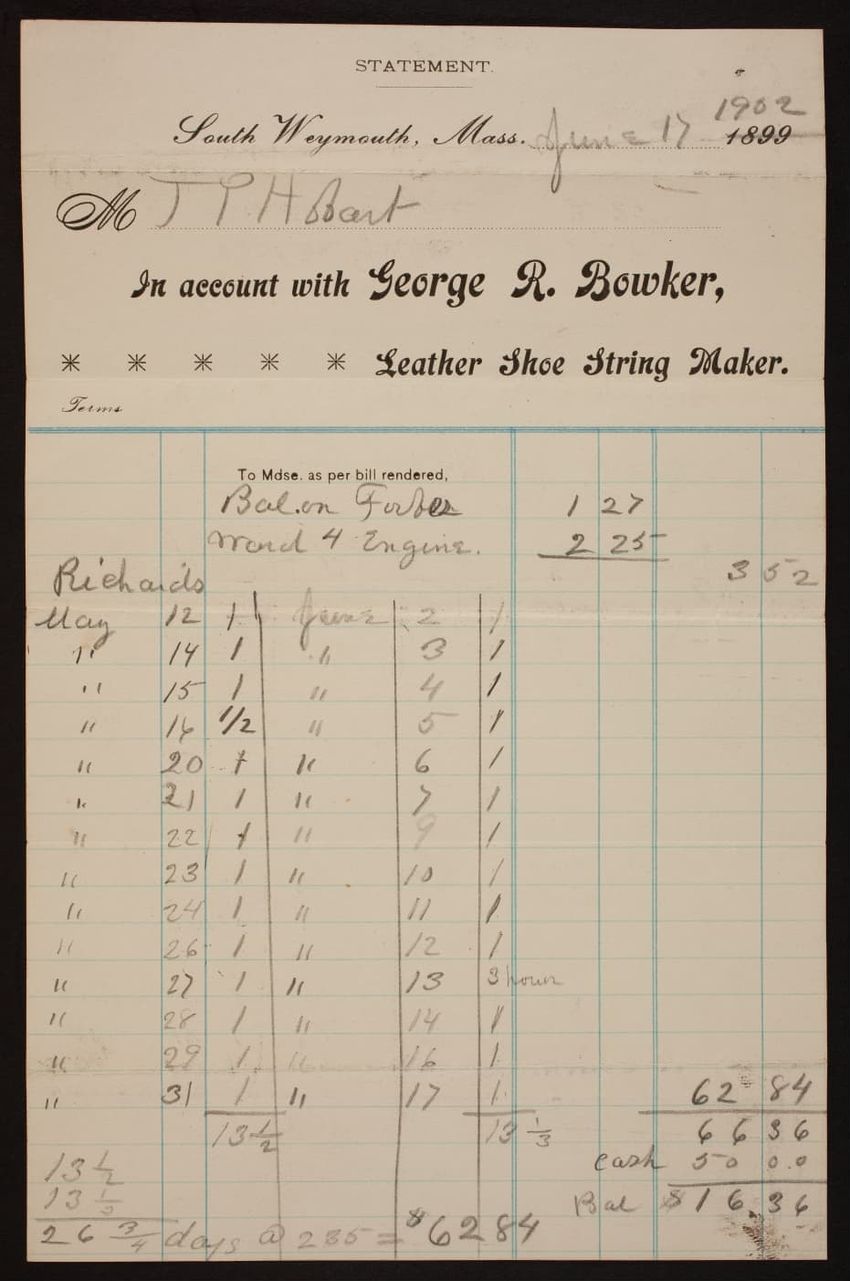 STATEMENT.
1902
South Weymouth, Mass. June 17 1899
M J P Hobart
In account with George R. Bowker,
Leather Shoe String Maker.
Terms
To Mdse. as per bill rendered,
Bal. on Forbes 1 27
Ward 4 Engine. 2 25
3 52
Richards
May 12 1 June 2 1
" 14 1 " 3 1
" 15 1 " 4 1
" 16 1/2 " 5 1
" 20 1 " 6 1
" 21 1 " 7 1
" 22 1 " 9 1
" 23 1 " 10 1
" 24 1 " 11 1
" 26 1 " 12 1
" 27 1 " 13 3 hours
" 28 1 " 14 1
" 29 1 " 16 1
" 31 1 " 17 1 62 84
13 1/2 13 1/3 66 36
13 1/2 Cash 50 00
13 1/3 Bal $16.36
26 3/4 days @ 235 = $62 84